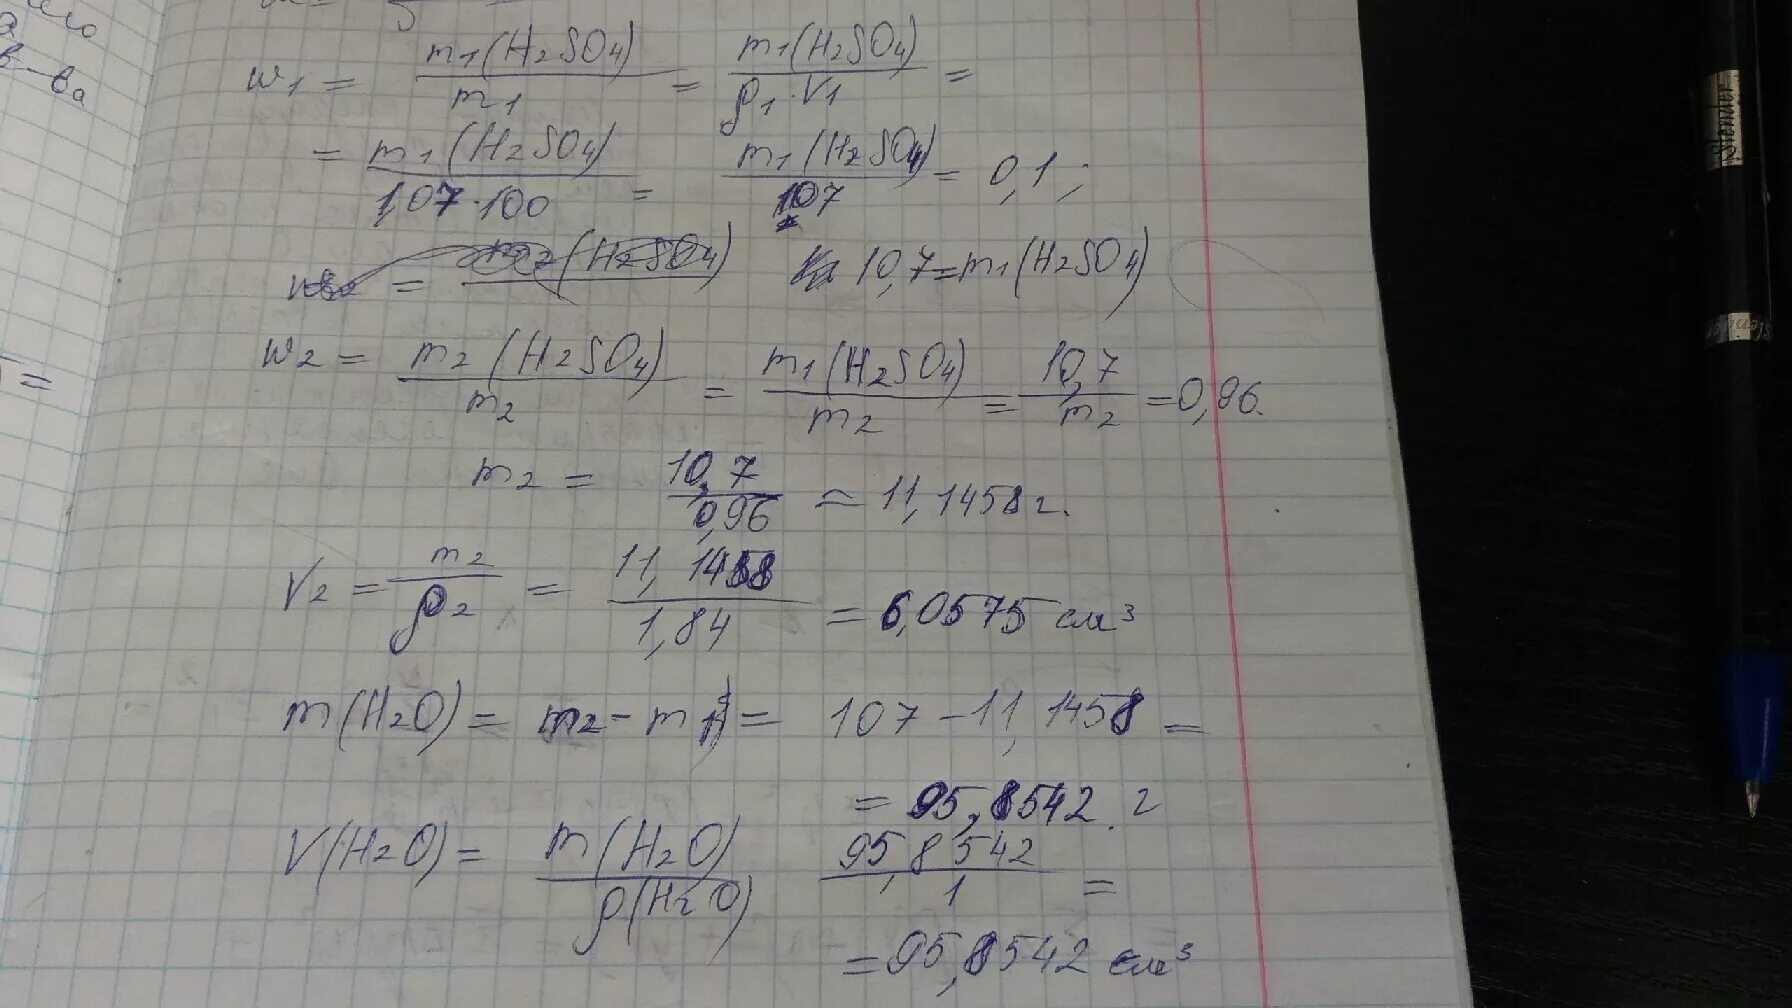 в-ва
w1 = m1(H2SO4) / m1 = m1(H2SO4) / ρ1·V1 =
= m1(H2SO4) / 1,07·100 = m1(H2SO4) / 107 = 0,1;
= (H2SO4) 10,7=m1(H2SO4)
w2 = m2(H2SO4) / m2 = m1(H2SO4) / m2 = 10,7 / m2 = 0,96.
m2 = 10,7 / 0,96 = 11,1458 г.
V2 = m2 / ρ2 = 11,1458 / 1,84 = 6,0575 см³
m(H2O) = m2 - m1 = 107 - 11,1458 =
= 95,8542. г
V(H2O) = m(H2O) / ρ(H2O) 95,8542 / 1 =
= 95,8542 см³
Slender
Slender